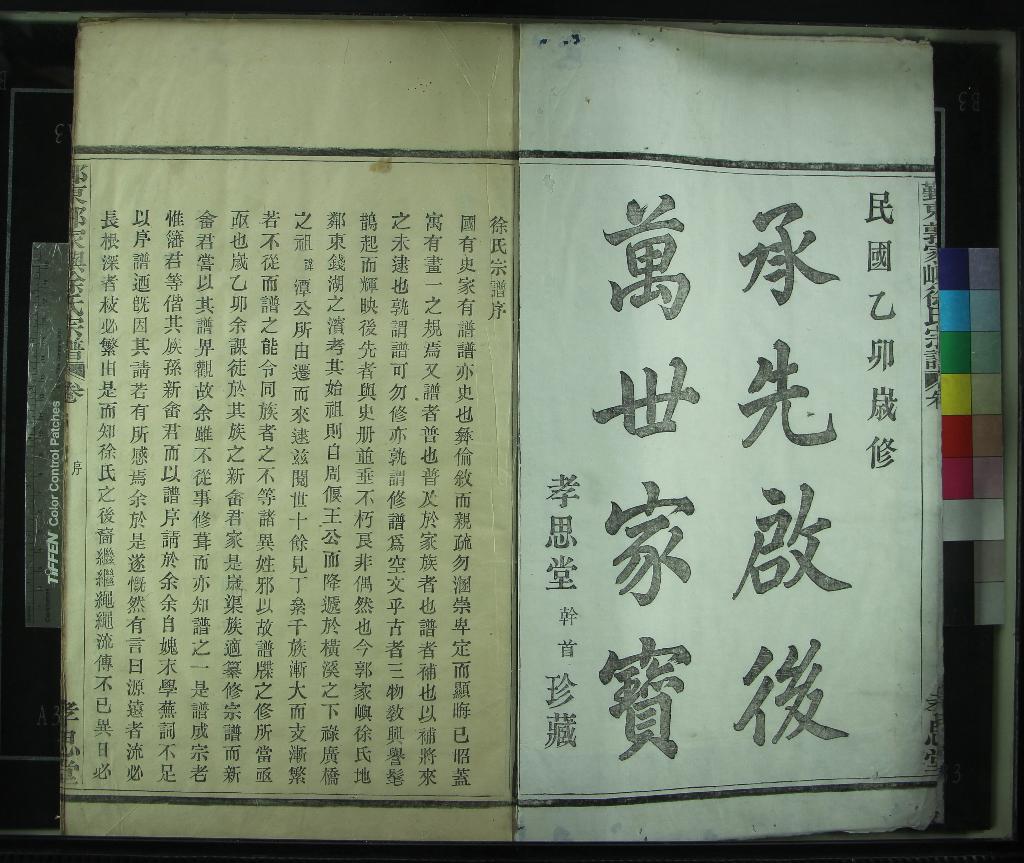 民國乙卯歲修
承先啟後
萬世家寶
孝思堂 幹首 珍藏
徐氏宗譜序
國有史家有譜譜亦史也彝倫敘而親疏勿溷崇卑定而顯晦已昭蓋
寓有畫一之規焉又譜者普也普及於家族者也譜者補也以補將來
之未逮也孰謂譜可勿修亦孰謂修譜爲空文乎古者三物敎興譽髦
鵲起而輝映後先者與史册並垂不朽良非偶然也今郭家嶼徐氏地
鄰東錢湖之濱考其始祖則自周偃王公而降遞於橫溪之下祿廣橋
之祖諱潭公所由遷而來逮兹閱世十餘見丁纍千族漸大而支漸繁
若不從而譜之能令同族者之不等諸異姓邪以故譜牒之修所當亟
亟也歲乙卯余課徒於其族之新畬君家是歲渠族適纂修宗譜而新
畬君嘗以其譜界觀故余雖不從事修葺而亦知譜之一是譜成宗老
惟籓君等偕其族孫新畬君而以譜序請於余余自媿末學蕪詞不足
以序譜迺旣因其請若有所感焉余於是遂慨然有言曰源遠者流必
長根深者枝必繁由是而知徐氏之後裔繼繼繩繩流傳不已異日必
鄞東郭家嶼徐氏宗譜 卷
序
孝思堂
TIFFEN Color Control Patches